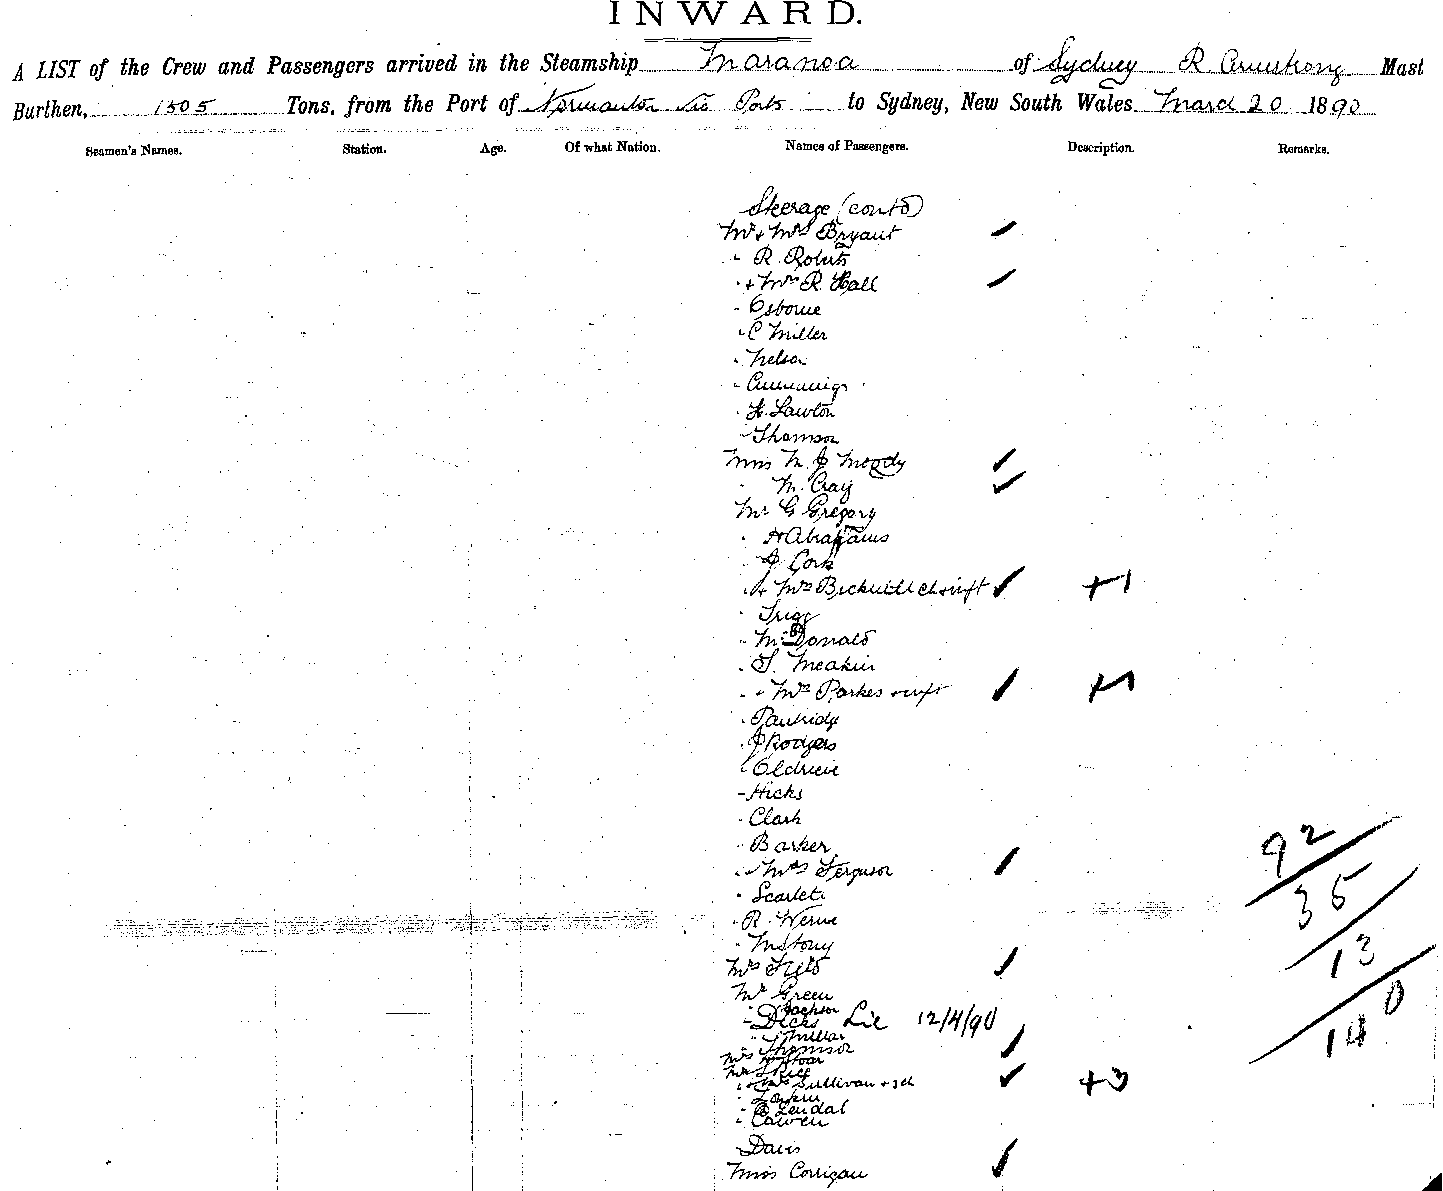 INWARD.
A LIST of the Crew and Passengers arrived in the Steamship Maranoa of Sydney R. Armstrong Mast
Burthen, 1505 Tons, from the Port of Normanton via Ports to Sydney, New South Wales. March 20 1890
Seamen's Names. Station. Age. Of what Nation. Names of Passengers. Description. Remarks.
Steerage (contd)
Mr + Mrs Bryant
" R. Roberts
" + Mrs R. Hall
" Osborne
" C Miller
" Nelson
" Cummings
" H. Lawton
" Thomson
Miss M. J Moody
" M. Cray
Mr G Gregory
" H Abrahams
J. Cork
" + Mrs Beckwith Ch + inft +1
" Trigg
" McDonald
" T. Meakin
" + Mrs Parkes + inft +1
" Partridge
" J Rodgers
" Oldrieve
" Hicks
" Clark
" Barker
" Mrs Ferguson
" Scarlett
" R. Werne
" McStony
Mrs Field
Mr Green
" Jackson
" Dicks Lic 12/4/90
" Millar
" Thomson
Mrs Hoar
Mr S Rice
" + Mrs Sullivan + 3 ch +3
" Larkin
" Lendal
" Cowen
" Davis
Miss Corrigan
92
35
13
0
140